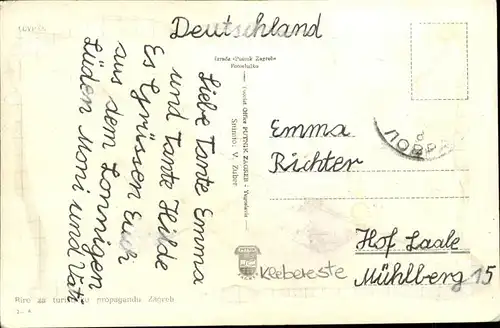 Deutschland
Izrada »Putnik Zagreb«
Liebe Tante Emma
und Tante Hilde
Es Grüssen Euch
aus dem Sonnigen
Süden Moni und Vati
Tourist Office PUTNIK-ZAGREB - Yugoslavia
Snimio: V. Zuber
Emma
Richter
Hof Saale
Mühlberg 15
ЛОВРА
Klebereste
Biro za turističku propagandu Zagreb